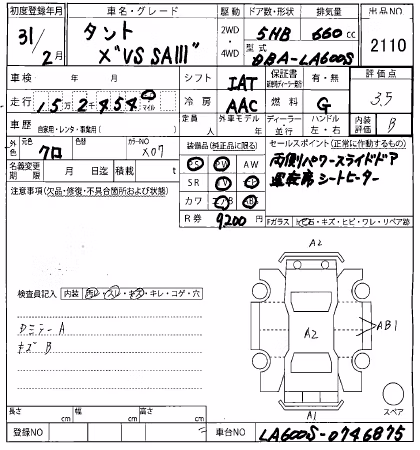 初度登録年月 車名・グレード 駆動 ドア数・形状 排気量 出品NO
31/2月 タント X"VS SAIII" 2WD・4WD 5HB 660cc 2110
型式 DBA-LA600S
車検 年 月 シフト IAT 保証書 有・無 評価点
走行 15万2千454 マイル 冷房 AAC 燃料 G 3.5
車歴 自家用・レンタ・事業用( ) 定員 人 外車モデル 年 ディーラー・並行 ハンドル 左・右 内装評価 B
外色 元色 クロ 色替 カラーNO X07 装備品(純正品に限る) セールスポイント(正常に作動するもの)
名義変更期限 月 日迄 積載 t PS PW AW 両側パワースライドドア
注意事項(欠品・修復・不具合箇所および状態) SR 運転席シートヒーター
カワ AB
R券 9200円 Fガラス 石・キズ・ヒビ・ワレ・リペア跡
検査員記入 内装 汚レ・スレ・キズ・キレ・コゲ・穴
A2
キズ B
A2
AB1
A1
スペア
長さ cm 幅 cm 高さ cm
登録NO 車台NO LA600S-0746875